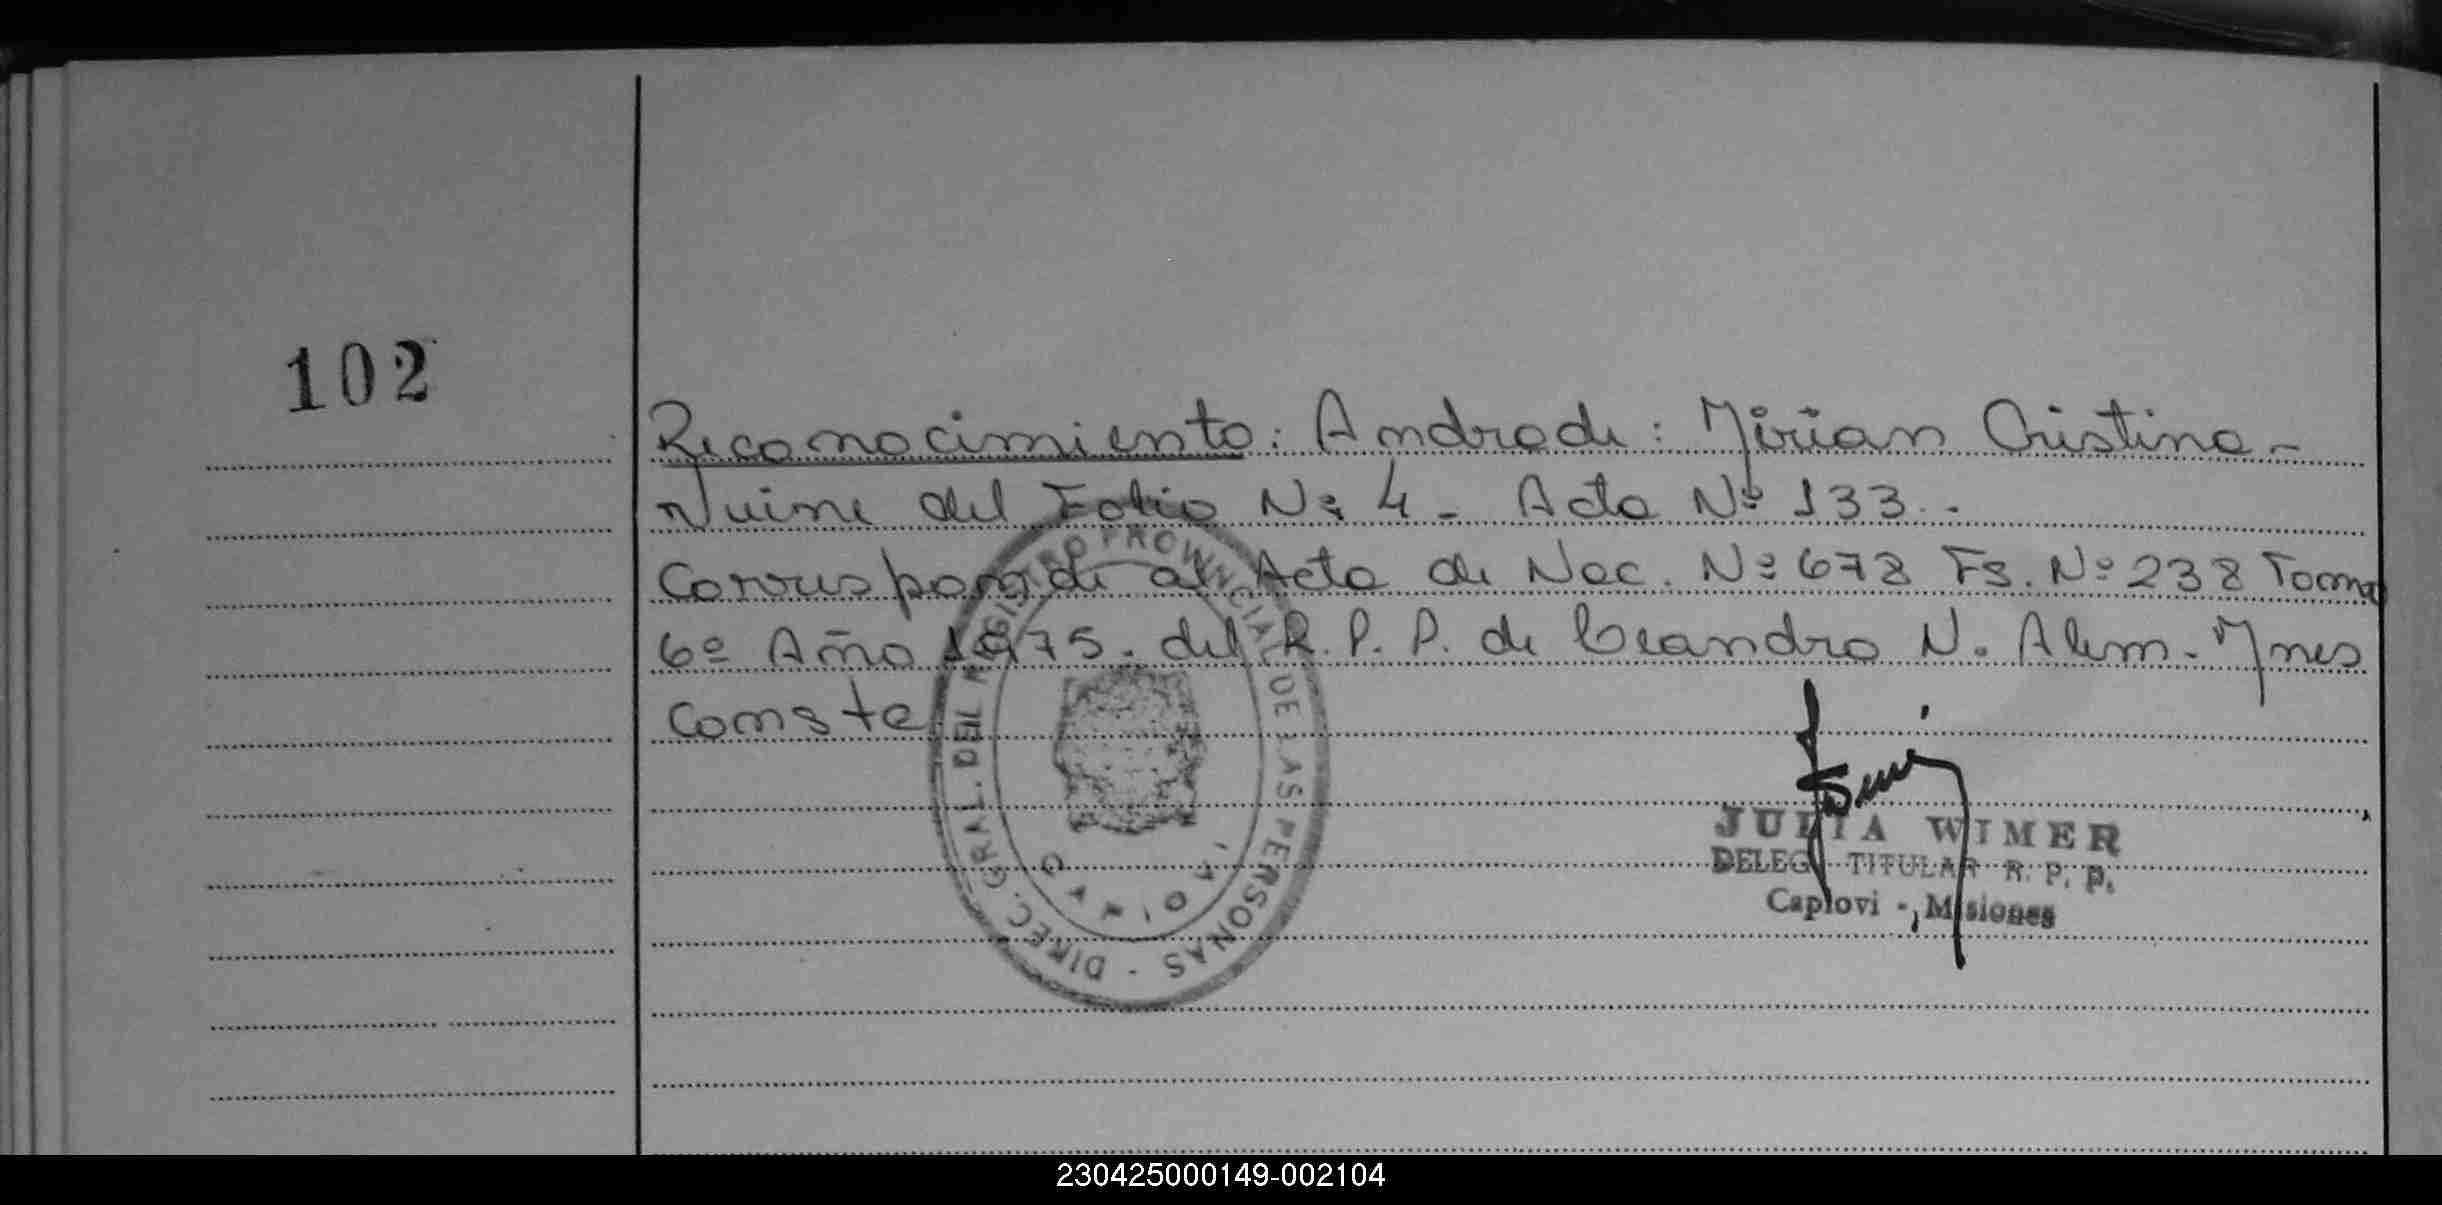 102
Reconocimiento: Andrade: Mirian Cristina-
Viene del Folio Nº 4 - Acta Nº 133.-
Corresponde al Acta de Nac. Nº 678 Fs. Nº 238 Tomo
6º Año 1975. del R. P. P. de Leandro N. Alem.- Ynes
Conste
DIREC. GRAL. DEL REGISTRO PROVINCIAL DE LAS PERSONAS -
JULIA WIMER
DELEG. TITULAR R. P. P.
Capiovi - Misiones
230425000149-002104